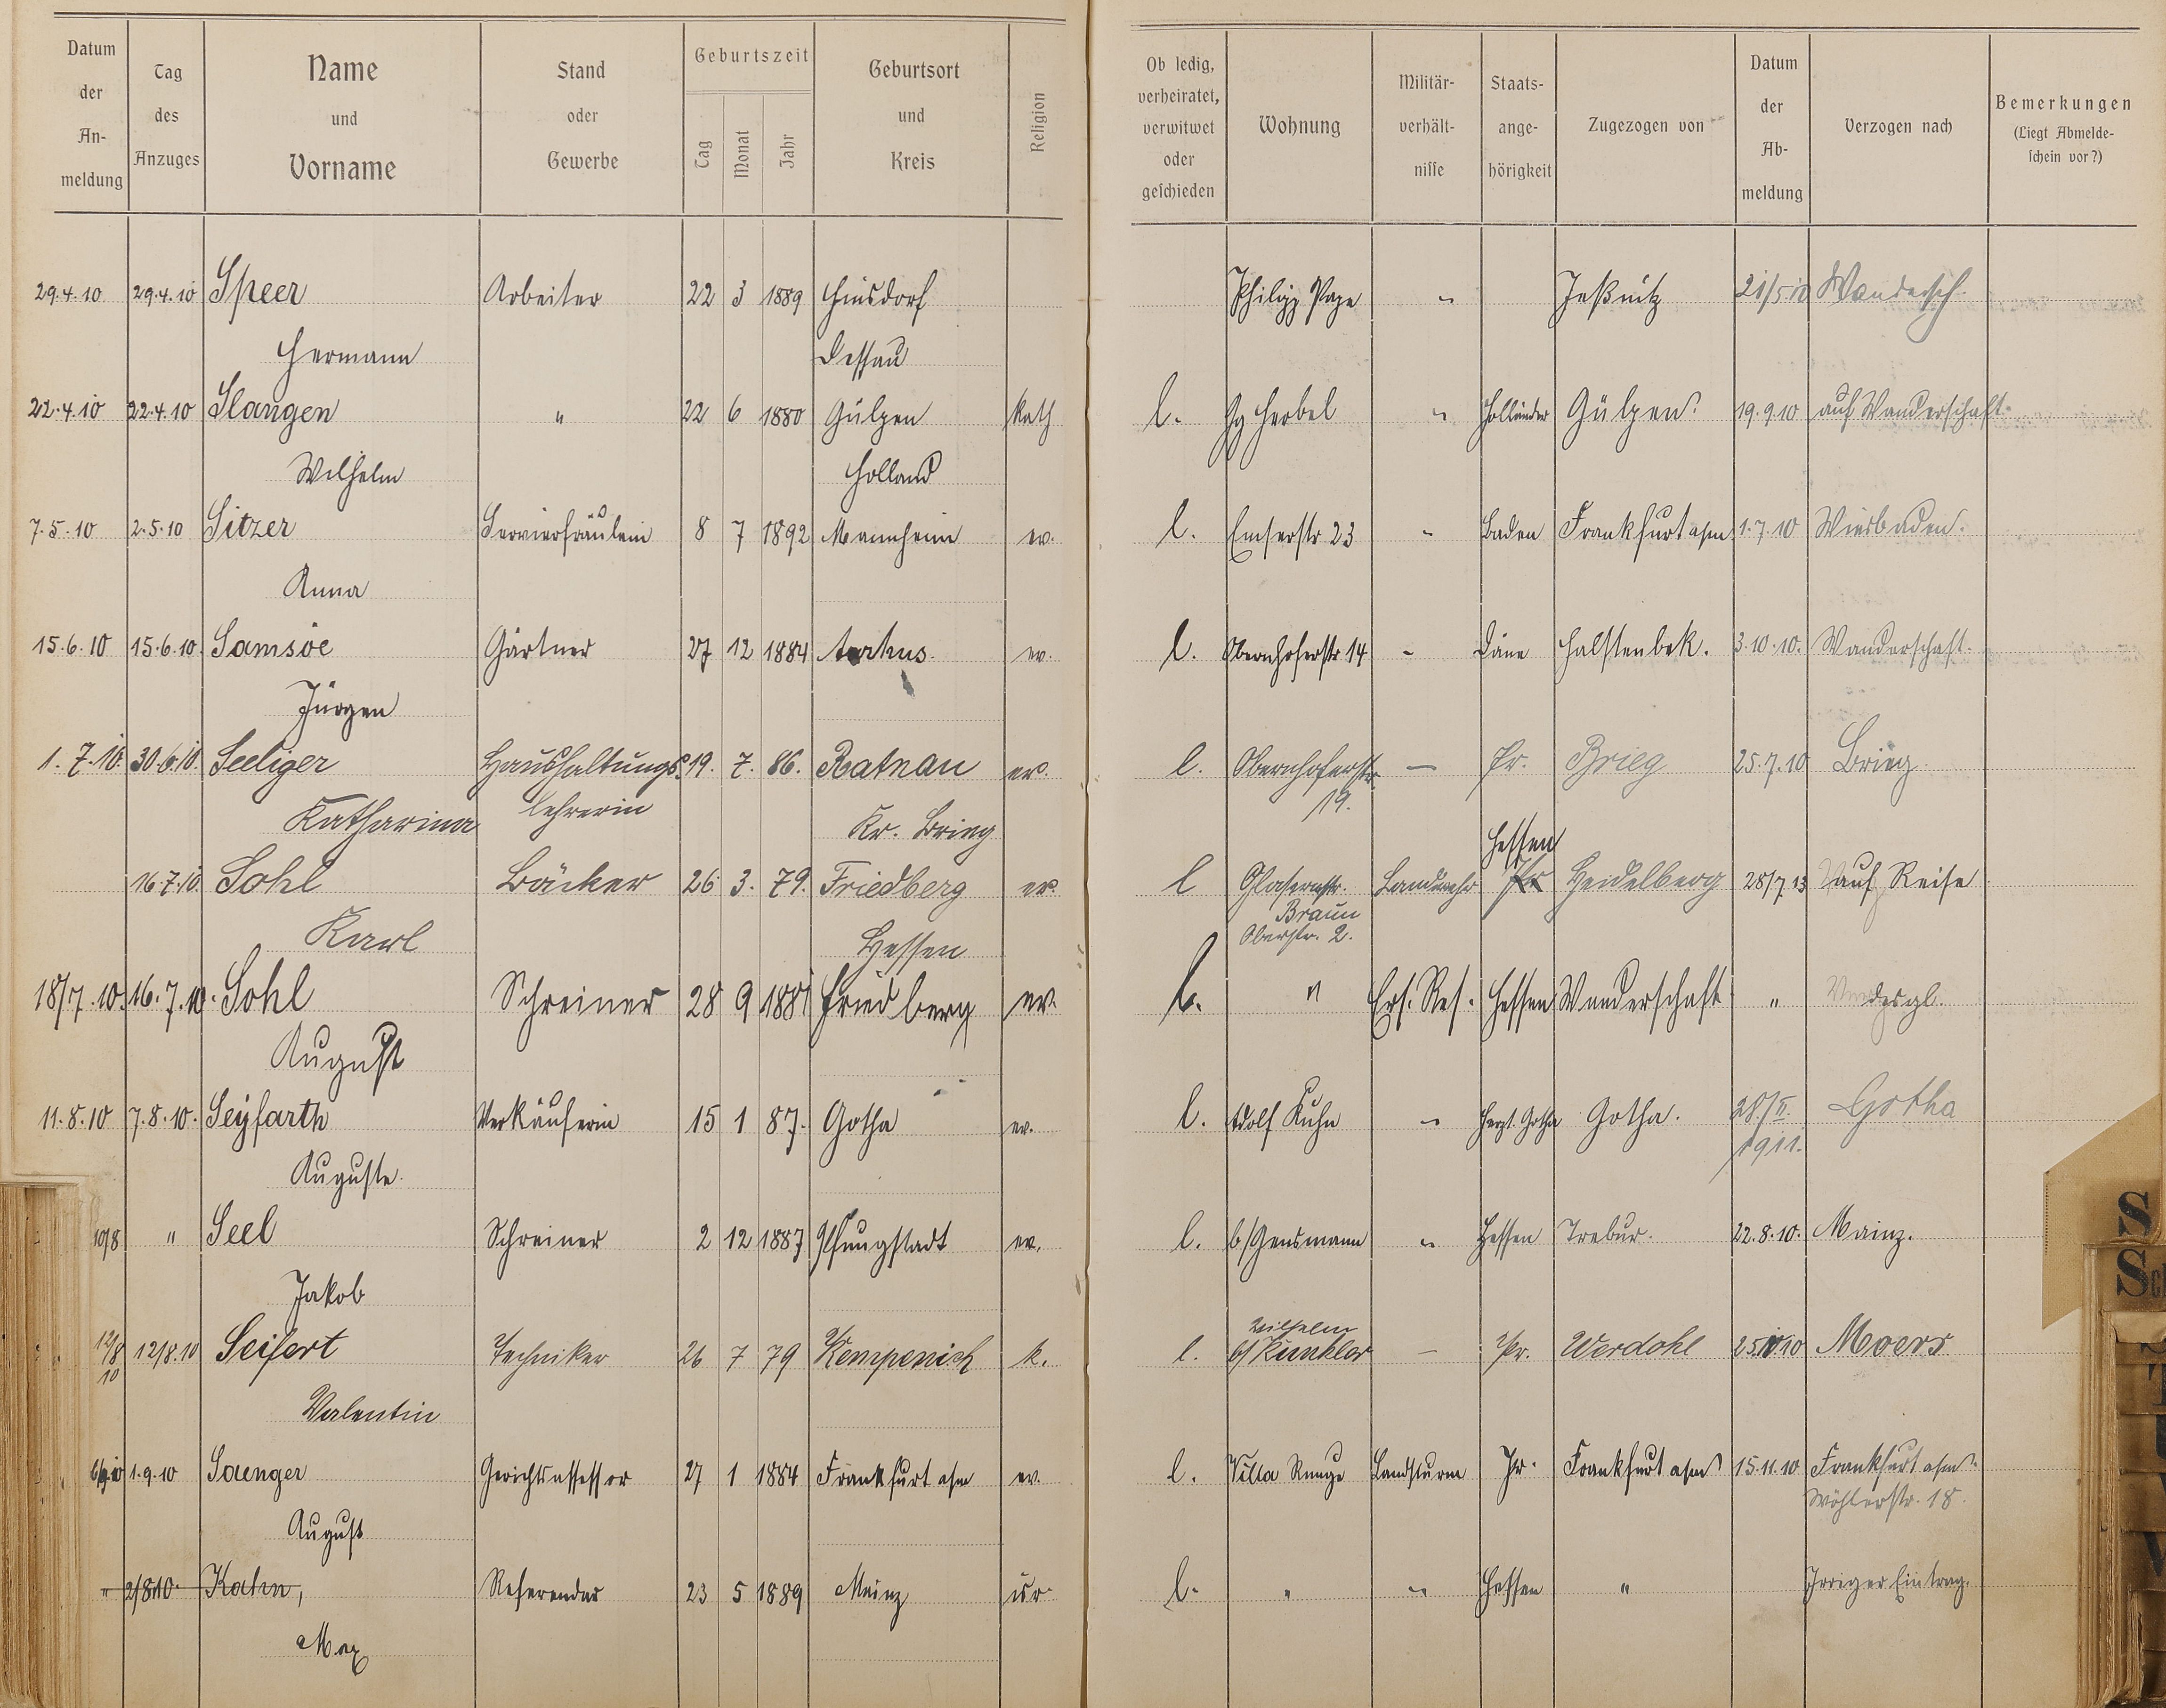 Datum der Anmeldung | Tag des Anzuges | Name und Vorname | Stand oder Gewerbe | Geburtszeit Tag Monat Jahr | Geburtsort und Kreis | Religion | Ob ledig, verheiratet, verwitwet oder geschieden | Wohnung | Militärverhältnisse | Staatsangehörigkeit | Zugezogen von | Datum der Abmeldung | Verzogen nach | Bemerkungen (Liegt Abmeldeschein vor?)
29.4.10 29.4.10 Speer Arbeiter 22 3 1889 Hinsdorf Philipp Pape " Jeßnitz 21/5 10 Wandersch.
Hermann Dessau
22.4.10 22.4.10 Slangen " 22 6 1880 Gülpen kath l. Gg Herbel " Holländer Gülpen. 19.9.10 auf Wanderschaft.
Wilhelm Holland
7.5.10 2.5.10 Sitzer Servierfräulein 8 7 1892 Mannheim ev. l. Emserstr 23 " Baden Frankfurt a/m 1.7.10 Wiesbaden.
Anna
15.6.10 15.6.10. Samsöe Gärtner 27 12 1884 Aarhus. ev. l. Obernhoferstr 14 - Däne Halstenbek. 3.10.10. Wanderschaft.
Jürgen
1.7.10. 30.6.10. Seeliger Haushaltungs- 19. 7. 86. Ratnau ev. l. Obernhoferstr — Pr. Brieg 25.7.10 Brieg
Katharina lehrerin Kr. Brieg 19.
Hessen
16.7.10. Sohl Bäcker 26 3. 79. Friedberg ev. l Landwehr Pr Heidelberg 28/7 13 auf Reise
Braun
Karl Hessen Oberstr. 2.
18/7.10. 16.7.10. Sohl Schreiner 28 9 1881 Friedberg ev. l. " Ers. Res. Hessen Wanderschaft " desgl.
August
11.8.10 7.8.10. Seyfarth Verkäuferin 15 1 87. Gotha ev. l. Adolf Kuhn " Herzt. Gotha Gotha. 28/II. Gotha
Auguste. 1911.
10/8 " Seel Schreiner 2 12 1887 Pfungstadt ev. l. b/Gensmann " Hessen Trebur. 22.8.10. Mainz.
Jakob
Wilhelm
12/8 10 12/8.10 Seifert Techniker 26 7 79 Kempenich k. l. b/ Kunkler — Pr. Werdohl 25 10 10 Moers
Valentin
6/9.10 1.9.10 Saenger Gerichtsassessor 27 1 1884 Frankfurt a/m ev. l. Villa Runge Landsturm Pr. Frankfurt a/m 15.11.10 Frankfurt a/m.
August Wöhlerstr. 18.
" 2/8.10. Kahn, Referendar 23 5 1889 Mainz isr. l. " " Hessen " Irriger Eintrag.
Max
S